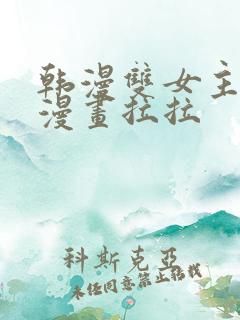 韩漫雙女主
漫畫拉拉
科斯克亞
未经同意禁止转载